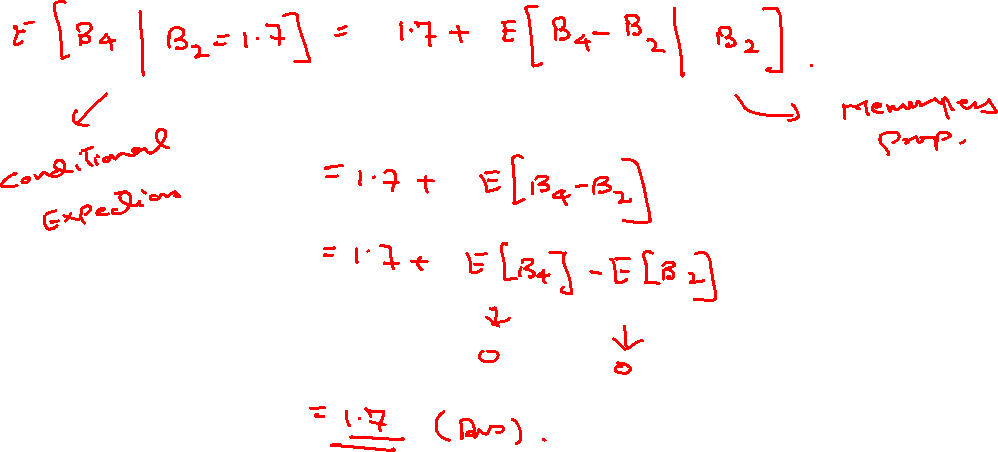 E [ B₄ | B₂ = 1.7 ] = 1.7 + E [ B₄ - B₂ | B₂ ] .
Conditional
Expection
Memoryless
Prop.
= 1.7 + E [ B₄ - B₂ ]
= 1.7 + E [ B₄ ] - E [ B₂ ]
↓ ↓
0 0
= 1.7 (Ans) .